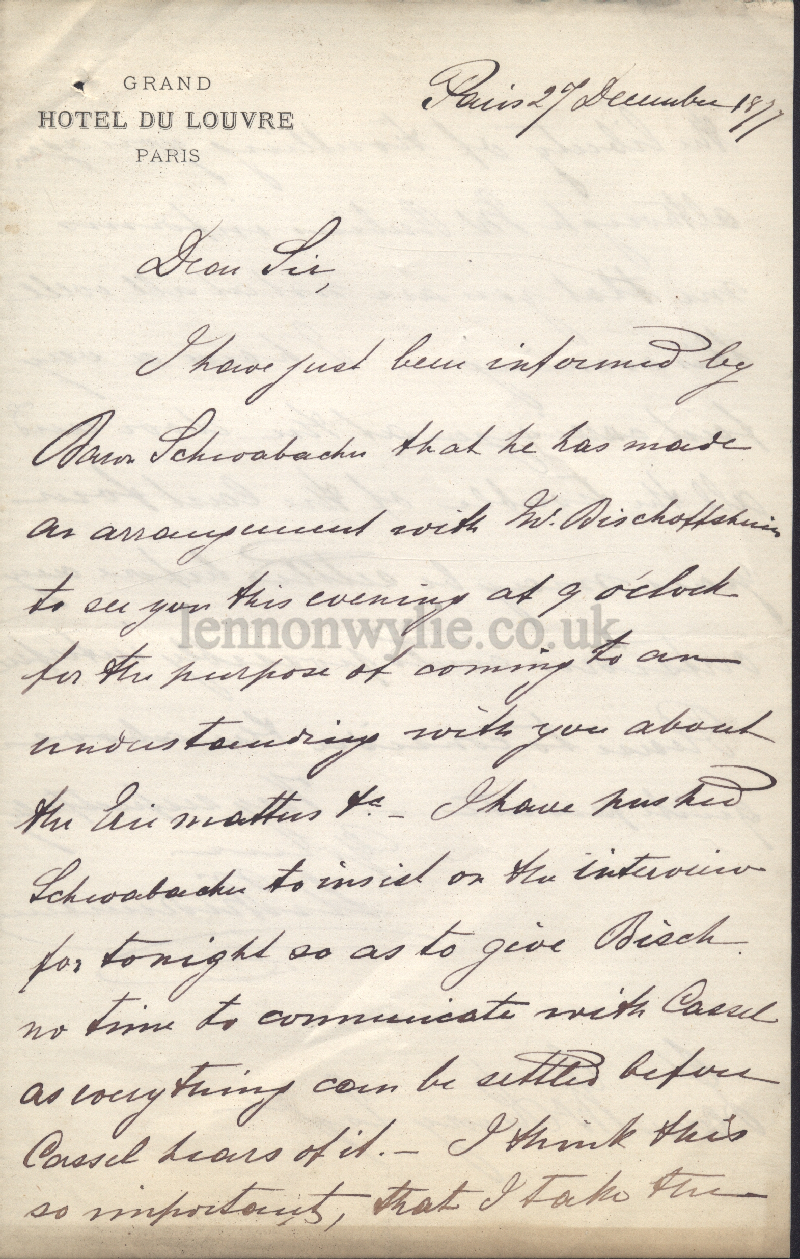 GRAND
HOTEL DU LOUVRE
PARIS
Paris 27 December 1877
Dear Sir,
I have just been informed by
Baron Schwabacher that he has made
an arrangement with Mr. Bischoffsheim
to see you this evening at 9 o'clock
lennonwylie.co.uk
for the purpose of coming to an
understanding with you about
the Erie matters &c - I have pushed
Schwabacher to insist on the interview
for tonight so as to give Bisch.
no time to communicate with Cassel
as everything can be settled before
Cassel hears of it. - I think this
so important, that I take the